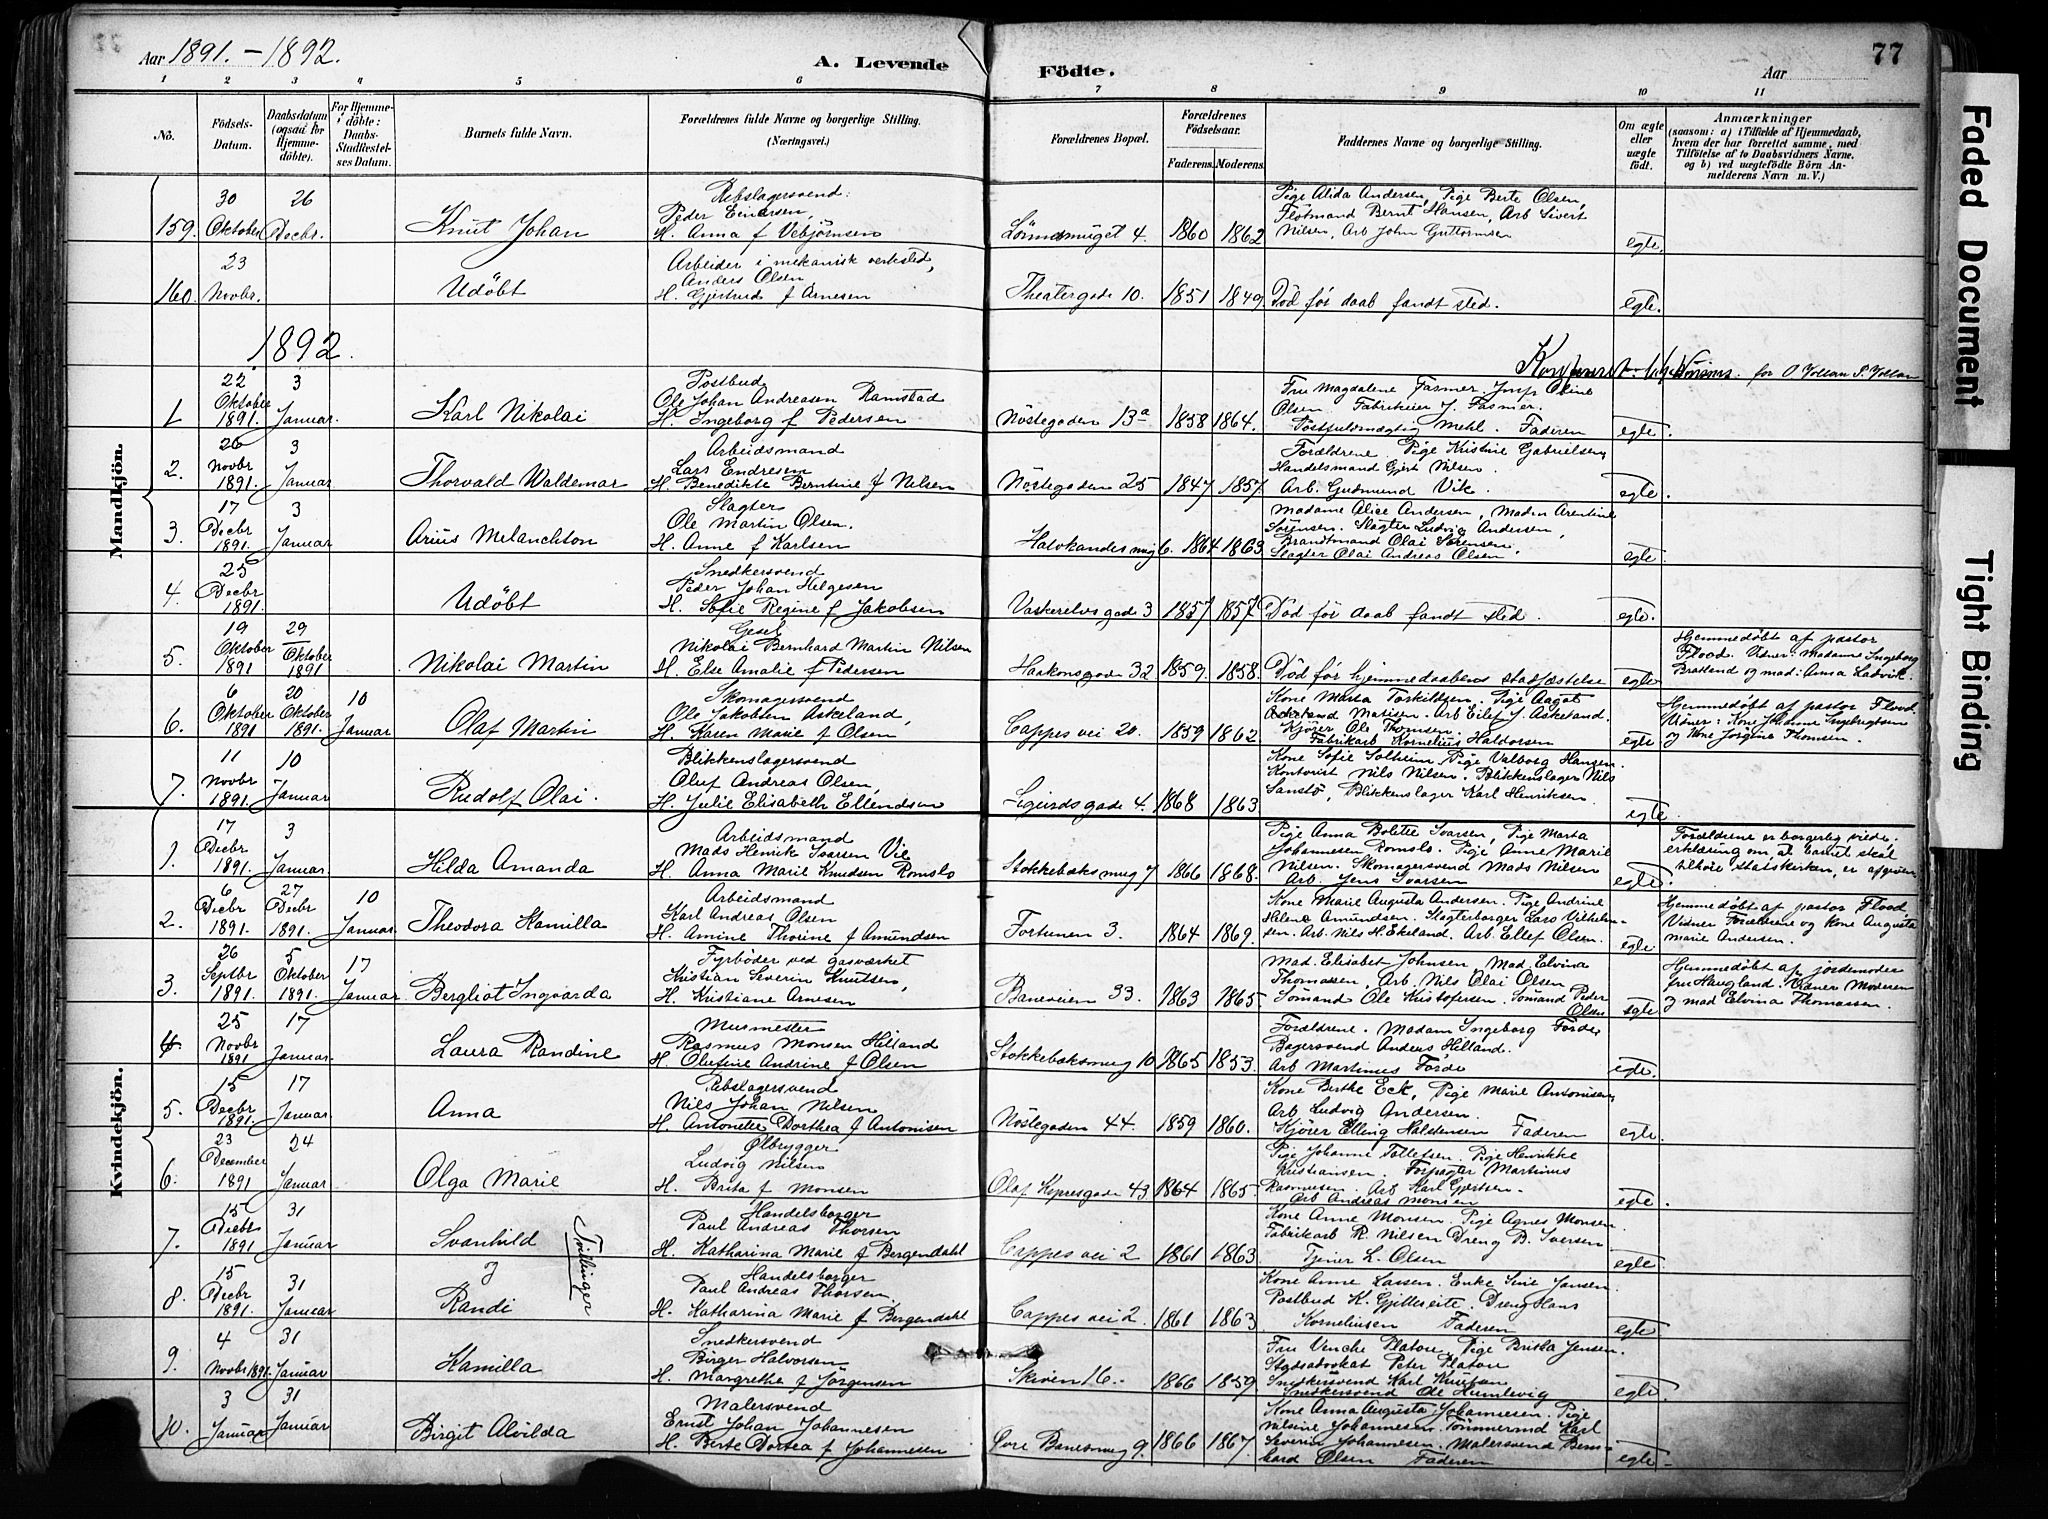 Aar 1891.-1892.
A. Levende Födte.
Aar
77
1 2 3 4 5 6 7 8 9 10 11
No.
Födsels-Datum.
Daabsdatum (ogsaa for Hjemmedöbte).
For Hjemmedöbte: Daabs-Stadfæstelses Datum.
Barnets fulde Navn.
Forældrenes fulde Navne og borgerlige Stilling. (Næringsvei.)
Forældrenes Bopæl.
Forældrenes Födselsaar.
Faderens. Moderens.
Faddernes Navne og borgerlige Stilling.
Om ægte eller uægte födt.
Anmærkninger (saasom: a) i Tilfælde af Hjemmedaab, hvem der har forrettet samme, med Tilföielse af to Daabsvidners Navne, og b) ved uegtefödte Börn Anmelderens Navn m. V.)
159. 30 Oktober 26 Decbr. Knut Johan
Rebslagersvend:
Peder Einarsen,
H. Anna f Vebjörnsen
4. 1860 1862
Pige Alida Andersen, Pige Berte Olsen,
Flötmand Bernt Hansen, Arb Sivert
Nilsen, Arb John Guttormsen
egte.
160. 23 Novbr. Udöbt
Arbeider i mekanisk verksted,
Anders Olsen
H. Gjertrud f Arnesen
Theatergade 10. 1851 1849. Död før daab fandt sted. egte.
1892.
for O Jollan S. Jollan
Mandkjön.
1 22 Oktober 1891. 3 Januar. Karl Nikolai
Postbud
Ole Johan Andreasen Ramstad
H. Ingeborg f Pedersen
Nöstegaden 13a 1858 1864.
Fru Magdalene Fasmer, Jmf Oline
Olsen. Fabrikeier J. Fasmer.
Postfuldmægtig Mehl. Faderen
egte.
2. 26 Novbr 1891. 3 Januar Thorvald Waldemar
Arbeidsmand
Lars Endresen
H. Benedikte Berntine f Nilsen
Nöstegaden 25 1847 1857.
Forældrene. Pige Kristine Gabrielsen,
Handelsmand Gjert Nilsen.
Arb. Gudmund Vik.
egte.
3. 17 Decbr 1891. 3 Januar Arius Melanckton
Slagter
Ole Martin Olsen.
H. Anne f Karlsen
6. 1864 1863
Madame Alice Andersen, Madm Arentine
Sörensen. Slagter Ludvig Andersen,
Brandtmand Olai Sörensen,
Slagter Olai Andreas Olsen
egte.
4. 25 Decbr 1891. Udöbt
Snedkersvend
Peder Johan Helgesen
H. Sofie Regine f Jakobsen
Vaskerelvsgade 3 1857 1857 Död før daab fandt sted. egte.
5. 19 Oktober 1891 29 Oktober 1891 Nikolai Martin
Gesel
Nikolai Bernhard Martin Nilsen
H. Else Amalie f Pedersen
Haakonsgade 32 1859. 1858. Död før hjemmedaabens stadfæstelse egte
Hjemmedöbt af pastor
Flood. Vidner: Madame Ingeborg
Brattend og mad: Anna Ladvik.
6. 6 Oktober 1891 20 Oktober 1891. 10 Januar Olaf Martin
Skomagersvend
Ole Jakobsen Askeland,
H. Karen Marie f Olsen
Cappes vei 20. 1859 1862
Kone Marta Torkildsen. Pige Aagot
Askeland Matisen. Arb Eilef J. Askeland.
Kjörer Ole Thomsen.
Fabrikarb Kornelius Haldorsen
egte
Hjemmedöbt af pastor Flood.
Vidner: Kone Johanne Ingebrigtsen
og Kone Jörgine Thomsen.
7. 11 Novbr 1891. 10 Januar Rudolf Olai.
Blikkenslagersvend
Oluf Andreas Olsen,
H. Julie Elisabeth Ellendsen
Sigurdsgade 4. 1868 1863
Kone Sofie Solheim, Pige Valborg Hansen.
Kontorist Nils Nilsen. Blikkenslager Nils
Sanstö, Blikkenslager Karl Henriksen.
egte.
Kvindekjön.
1. 17 Decbr 1891. 3 Januar. Hilda Amanda
Arbeidsmand
Mads Henrik Ivarsen Vie
H. Anna Marie Knudsen Romslo
Stokkebæksmug 7 1866 1868.
Pige Anna Bolette Ivarsen, Pige Marta
Johannesen Romslo. Pige Anne Marie
Nilsen. Skomagersvend Mads Nilsen
Arb. Jens Ivarsen
egte.
Forældrene er borgerlig viede.
erklæring om at barnet skal
tilhöre statskirken, er afgiven
2. 6 Decbr 1891. 27 Decbr 1891. 10 Januar Theodora Kamilla
Arbeidsmand
Karl Andreas Olsen
H. Amine Thorine f Amundsen
Fortunen 3. 1864 1869.
Kone Marie Augusta Andersen. Pige Andrine
Helene Amundsen. Slagterborger Lars Vilhelmsen.
Arb. Nils H. Ekeland. Arb. Ellef Olsen.
egte
Hjemmedöbt af pastor Flood.
Vidner Forældrene og Kone Augusta
Marie Andersen.
3. 26 Septbr 1891. 5 Oktober 1891. 17 Januar. Bergliot Ingvarda
Fyrböder ved gasværket
Kristian Severin Knutsen,
H. Kristiane Arnesen
Baneveien 33. 1863 1865
Mad. Elisabet Johnsen, Mad. Elvina
Thomassen, Arb. Nils Olai Olsen
Sömand Ole Kristofersen. Sömand Peder
Olsen
egte
Hjemmedöbt af jordemoder
fru Haugland. Vidner Moderen
og mad Elvina Thomassen.
4. 25 Novbr 1891 17 Januar. Laura Randine
Murmester
Rasmus Monsen Hilland
H. Olufine Andrine f Olsen
Stokkebæksmug 10 1865 1853.
Forældrene. Madam Ingeborg Förde
Bagersvend Anders Hilland.
Arb Martinus Förde
egte.
5. 15 Decbr 1891. 17 Januar. Anna
Rebslagersvend
Nils Johan Nilsen
H. Antonette Dorthea f Antonisen
Nöstegaden 44. 1859 1860.
Kone Berthe Eck, Pige Marie Antonisen,
Arb Ludvig Andersen.
Kjörer Elling Halstensen Faderen
egte.
6. 23 December 1891 24 Januar Olga Marie
Ølbrygger
Ludvig Nilsen
H. Brita f Monsen
Olaf Kyrresgade 43 1864 1865.
Pige Johanne Tollefsen. Pige Henrikke
Kristiansen. Forpagter Martinus
Rasmusen. Arb Karl Gjertsen.
Arb Andreas Monsen
egte.
7. 15 Decbr 1891 31 Januar Svanhild
og
Tvillinger
Handelsborger
Paul Andreas Thorsen
H. Katharina Marie f Bergendahl
Cappes vei 2 1861 1863.
Kone Anne Monsen. Pige Agnes Monsen
Fabrikarb R. Nilsen Dreng B. Iversen.
Tjener L. Olsen
egte.
8. 15 Decbr 1891. 31 Januar Randi
Handelsborger
Paul Andreas Thorsen.
H. Katharina Marie f Bergendahl
Cappes vei 2. 1861 1863
Kone Anne Larsen. Enke Sine Jansen
Postbud K. Gjilleseite. Dreng Hans
Korneliusen Faderen
egte
9. 4 Novbr 1891. 31 Januar Kamilla
Snedkersvend
Birger Halvorsen
H. Margrethe f Jörgensen
Skiven 16. 1866 1859
Fru Venche Platou. Pige Briska Jensen.
Stadsadvokat Peter Platou
Snedkersvend Karl Knutsen
Snedkersvend Ole Humlevig
egte
10. 3 Januar 31 Januar Birgit Alvilda
Malersvend
Ernst Johan Johannesen
H. Berte Dortea f Johannesen
Øvre Banesmug 9. 1866 1867.
Kone Anna Augusta Johannesen. Pige
Nilsine Johannesen. Tömmermd Karl
Severin Johannesen. Malersvend Bernhard Olsen Faderen
egte.
Faded Document
Tight Binding